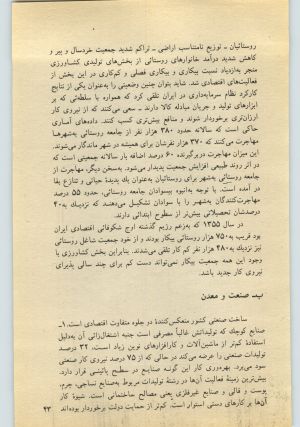 روستائیان ـ توزیع نامتناسب اراضی ـ تراکم شدید جمعیت خردسال و پیر و
کاهش شدید درآمد خانوارهای روستائی از بخش‌های تولیدی کشاورزی
منجر به‌ازدیاد نسبت بیکاری و بیکاری فصلی و کم‌کاری در این بخش از
فعالیت‌های اقتصادی شد. شاید بتوان چنین وضعیتی را به‌عنوان یکی از نتایج
کارکرد نظام سرمایه‌داری در ایران تلقی کرد که همواره با سلطه‌ئی که بر
ابزارهای تولید و جریان مبادله کالا دارند ـ سعی می‌کنند که از نیروی کار
ارزان‌تری برخوردار شوند و منافع بیش‌تری کسب کنند. داده‌های آماری
حاکی است که سالانه حدود ۳۸۰ هزار نفر از جامعه روستائی به‌شهرها
مهاجرت می‌کنند که ۳۷۰ هزار نفرشان برای همیشه در شهر ماندگار می‌شوند.
این میزان مهاجرت دربرگیرنده ۶۰ درصد اضافه بار سالانه جمعیتی است که
در اثر روند طبیعی افزایش جمعیت پدیدار می‌شود. به‌سخن دیگر، مهاجرت از
جامعه روستائی به‌شهر برای روستائیان به‌عنوان یک پدیدهٔ حیاتی و تنازع بقا
در آمده است. با توجه به‌انبوه بیسوادان روستائی، حدود ۵۵ درصد
مهاجرت‌کنندگان به‌شهر را با سوادان تشکیل می‌دهند که نزدیک به‌۴۰
درصدشان تحصیلاتی بیش‌تر از سطوح ابتدائی دارند.
در سال ۱۳۵۵ که به‌زعم رژیم گذشته اوج شکوفائی اقتصادی ایران
بود قریب به‌۷۵۰ هزار روستائی بیکار بودند و از خود جمعیت شاغل روستائی
نیز نزدیک به‌۴۸۰ هزار نفر کم کار تلقی می‌شدند. بنابراین بخش کشاورزی با
وجود این همه جمعیت بیکار نمی‌تواند دست کم برای چند سالی پذیرای
نیروی کار جدید باشد.
ب‌ـ صنعت و معدن
ساخت صنعتی کشور منعکس‌کنندهٔ دو جلوه متفاوت اقتصادی است. ۱ـ
صنایع کوچک که تولیداتش غالباً مصرفی است جنبه اشتغال‌زائی آن به‌دلیل
استفادهٔ کم‌تر از ماشین‌آلات و کارافزارهای نوین زیاد است، ۳۲ درصد
تولیدات صنعتی را عرضه می‌کند در حالی که از ۷۵ درصد نیروی کار صنعتی
سود می‌برد. بهره‌وری کار این گونه صنایع در سطح پائینی قرار دارد.
بیش‌ترین زمینهٔ فعالیت آن‌ها در رشتهٔ تولیدات مربوط به‌صنایع نساجی، چرم،
پوست و قالی و صنایع غیرفلزی یعنی مصالح ساختمانی است. شیوهٔ کار
آن‌ها بر کارهای دستی استوار است. کم‌تر از حمایت دولت برخوردار بوده‌اند
۴۳